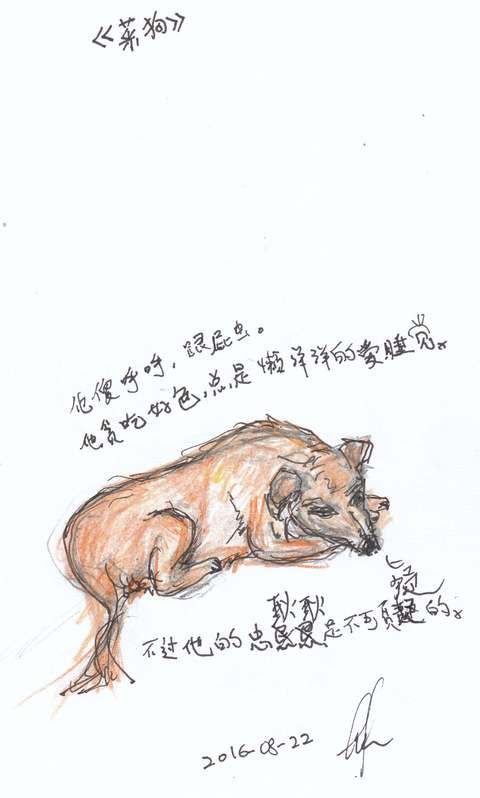 《菜狗》
他傻乎乎，跟屁虫。
他贪吃好色，总是懒洋洋的爱睡觉。
不过他的忠耿耿是不可质疑的。
2016-08-22